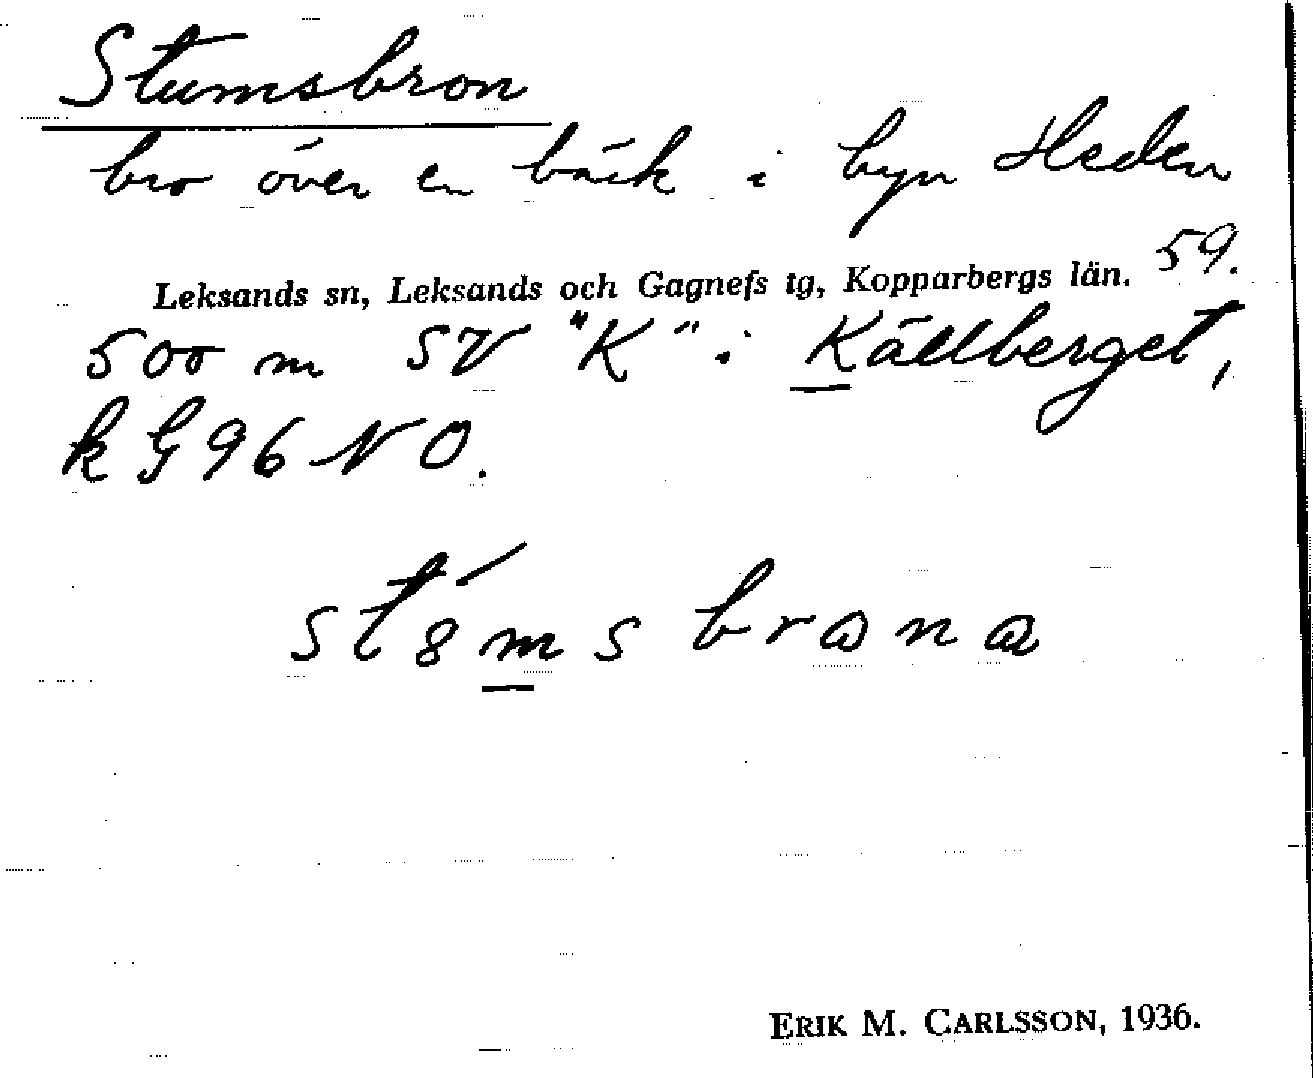 Stumsbron
bro över en bäck i byn Heden
Leksands sn, Leksands och Gagnefs tg, Kopparbergs län. 59.
500 m SV "K" i Källberget,
kG96NO.
ERIK M. CARLSSON, 1936.